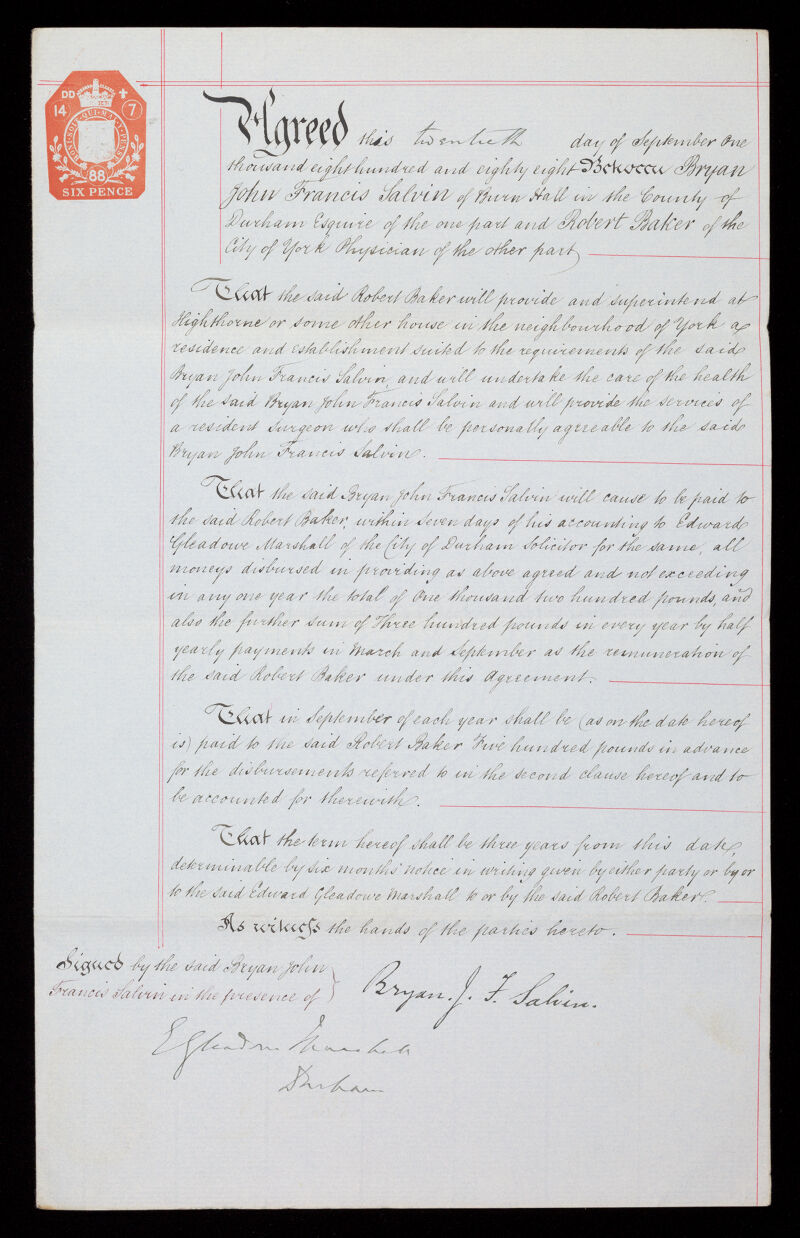 DD
14
7
HONI·SOIT·QUI·MAL·Y·PENSE
88
SIX PENCE
Agreed this twentieth day of September One
thousand eight hundred and eighty eight Between Bryan
John Francis Salvin of Burn Hall in the County of
Durham Esquire of the one part and Robert Baker of the
City of York Physician of the other part
That the said Robert Baker will provide and superintend at
Highthorne or some other house in the neighbourhood of York a
residence and establishment suited to the requirements of the said
Bryan John Francis Salvin and will undertake the care of the health
of the said Bryan John Francis Salvin and will provide the services of
a resident Surgeon who shall be personally agreeable to the said
Bryan John Francis Salvin.
That the said Bryan John Francis Salvin will cause to be paid to
the said Robert Baker, within seven days of his accounting to Edward
Gleadowe Marshall of the City of Durham Solicitor for the same, all
moneys disbursed in providing as above agreed and not exceeding
in any one year the total of One thousand two hundred pounds, and
also the further sum of Three hundred pounds in every year by half
yearly payments in March and September as the remuneration of
the said Robert Baker under this Agreement.
That in September of each year shall be (as on the date hereof
is) paid to the said Robert Baker Five hundred pounds in advance
for the disbursements referred to in the second clause hereof and to
be accounted for therewith.
That the term hereof shall be three years from this date,
determinable by six months' notice in writing given by either party or by or
to the said Edward Gleadowe Marshall to or by the said Robert Baker.
As witness the hands of the parties hereto.
Signed by the said Bryan John
Francis Salvin in the presence of
Bryan. J. F. Salvin.
E Gleadowe Marshall
Durham